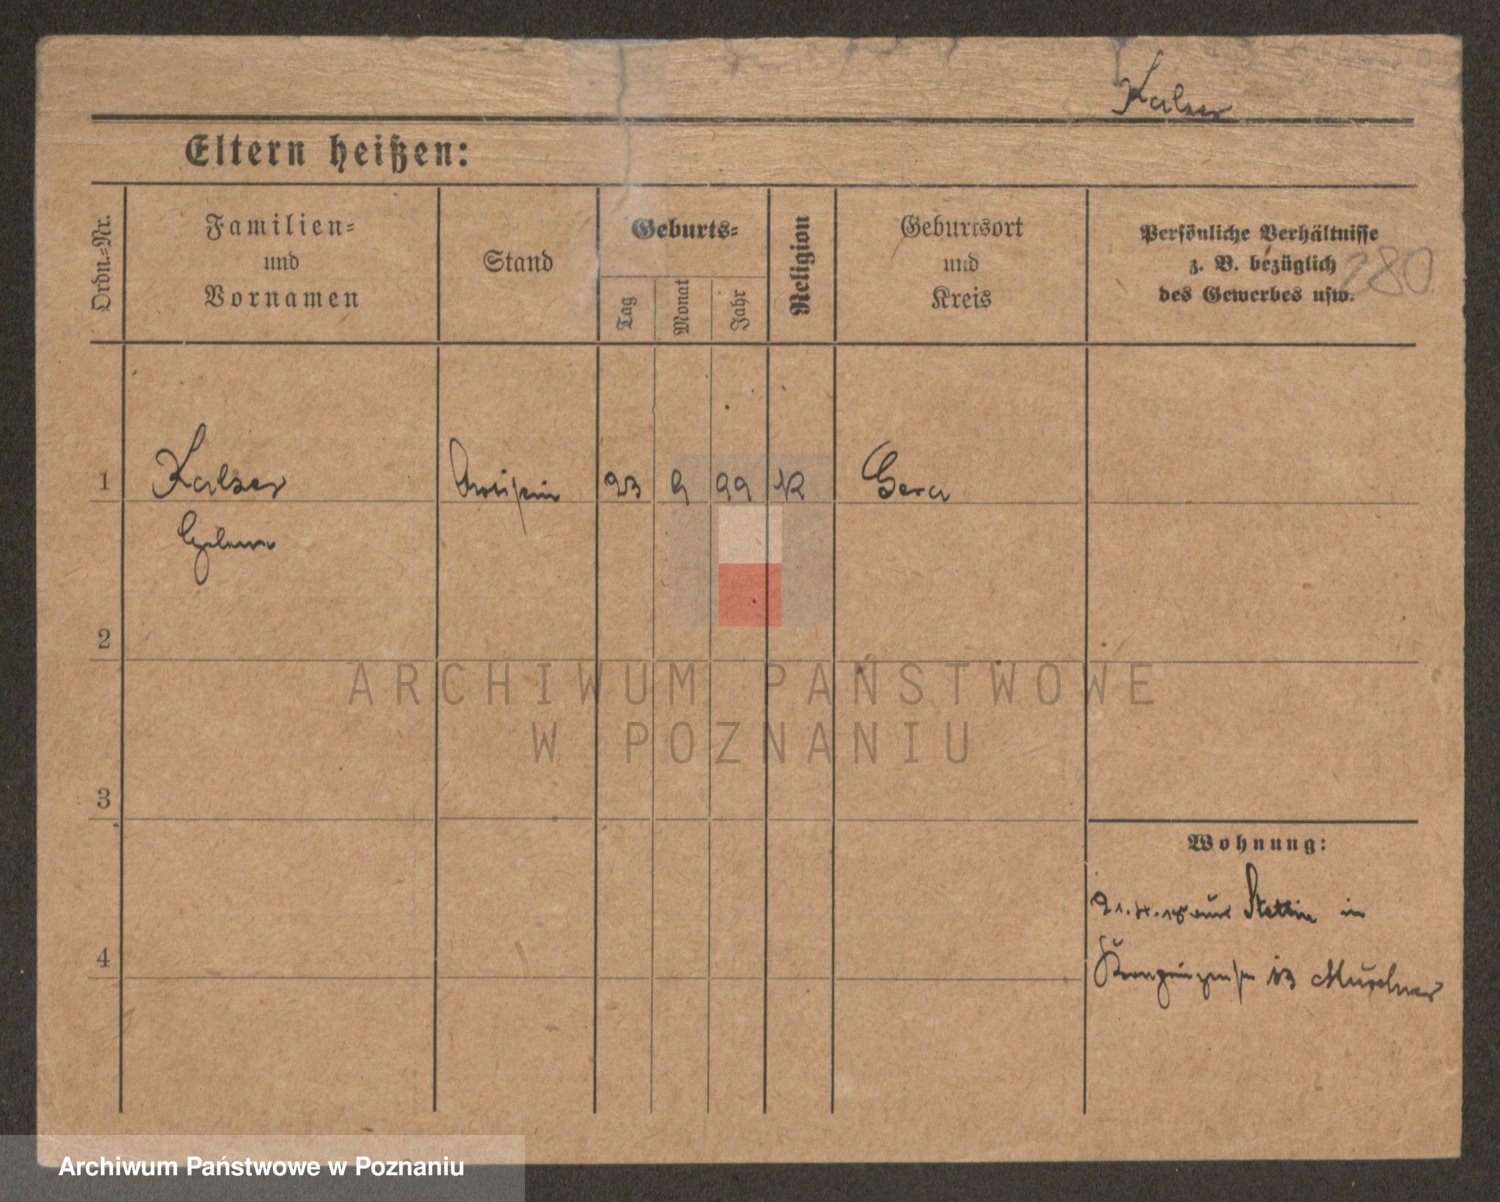 Kalser
Eltern heißen:
Ordn.-Nr.
Familien-
und
Vornamen
Stand
Geburts-
Tag
Monat
Jahr
Religion
Geburtsort
und
Kreis
Persönliche Verhältnisse
z. B. bezüglich
des Gewerbes usw.
280
1
Kalser
23 9 99 K
Gera
2
ARCHIWUM PAŃSTWOWE
W POZNANIU
3
Wohnung:
aus Stettin in
4
13
Archiwum Państwowe w Poznaniu